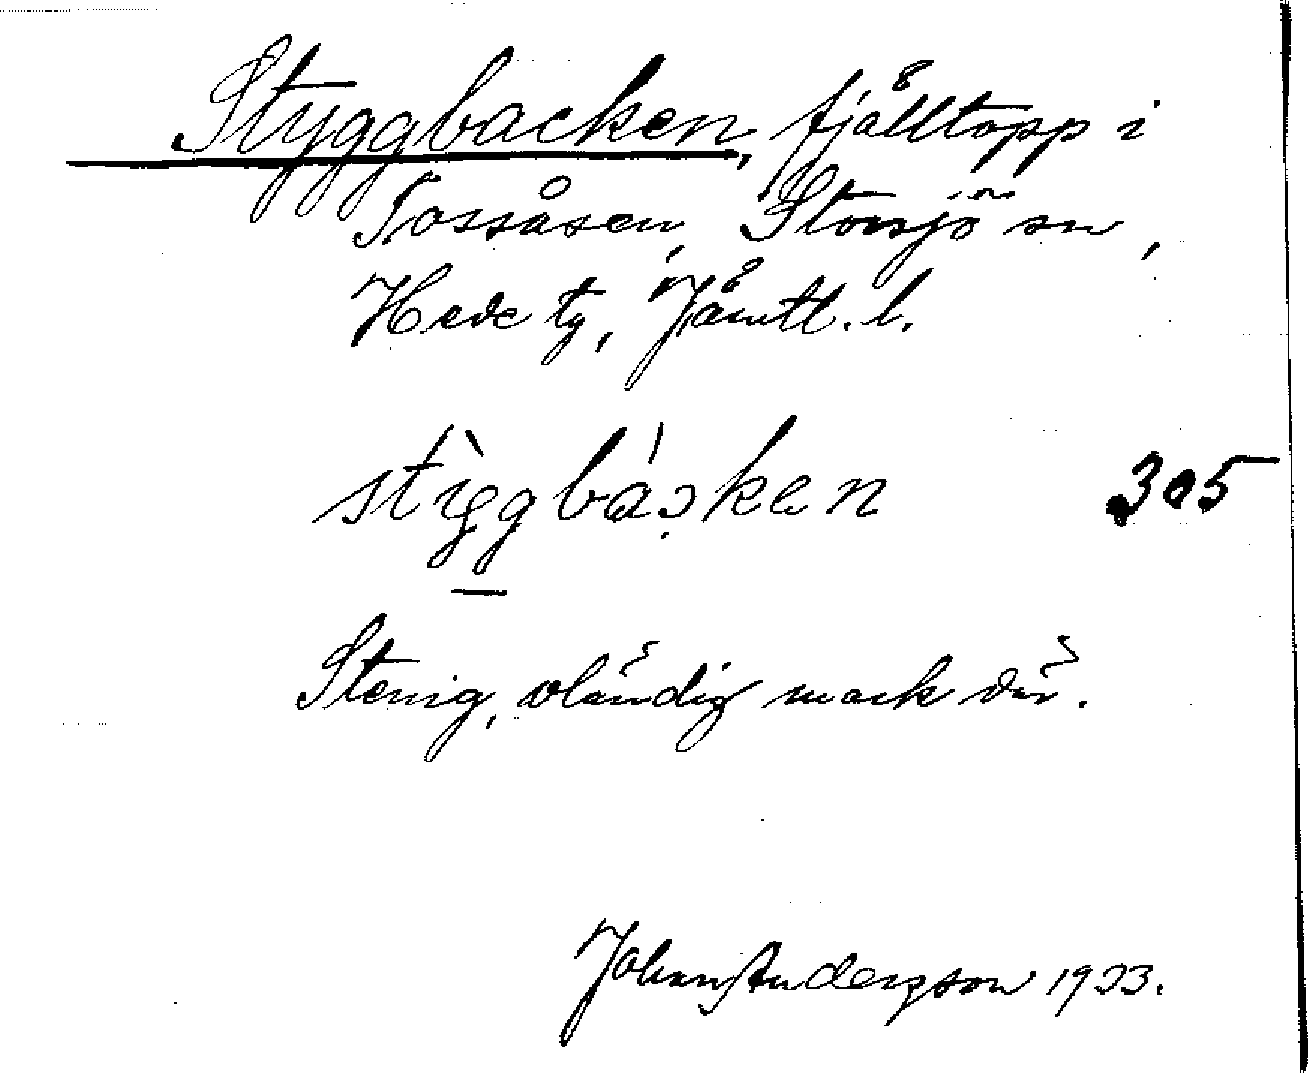 Styggbacken, fjälltopp i
Tossåsen, Storsjö sn,
Hede tg, Jämtl. l.
stìggbáken 305
Stenig, oländig mark där.
Johan Anderzson 1933.